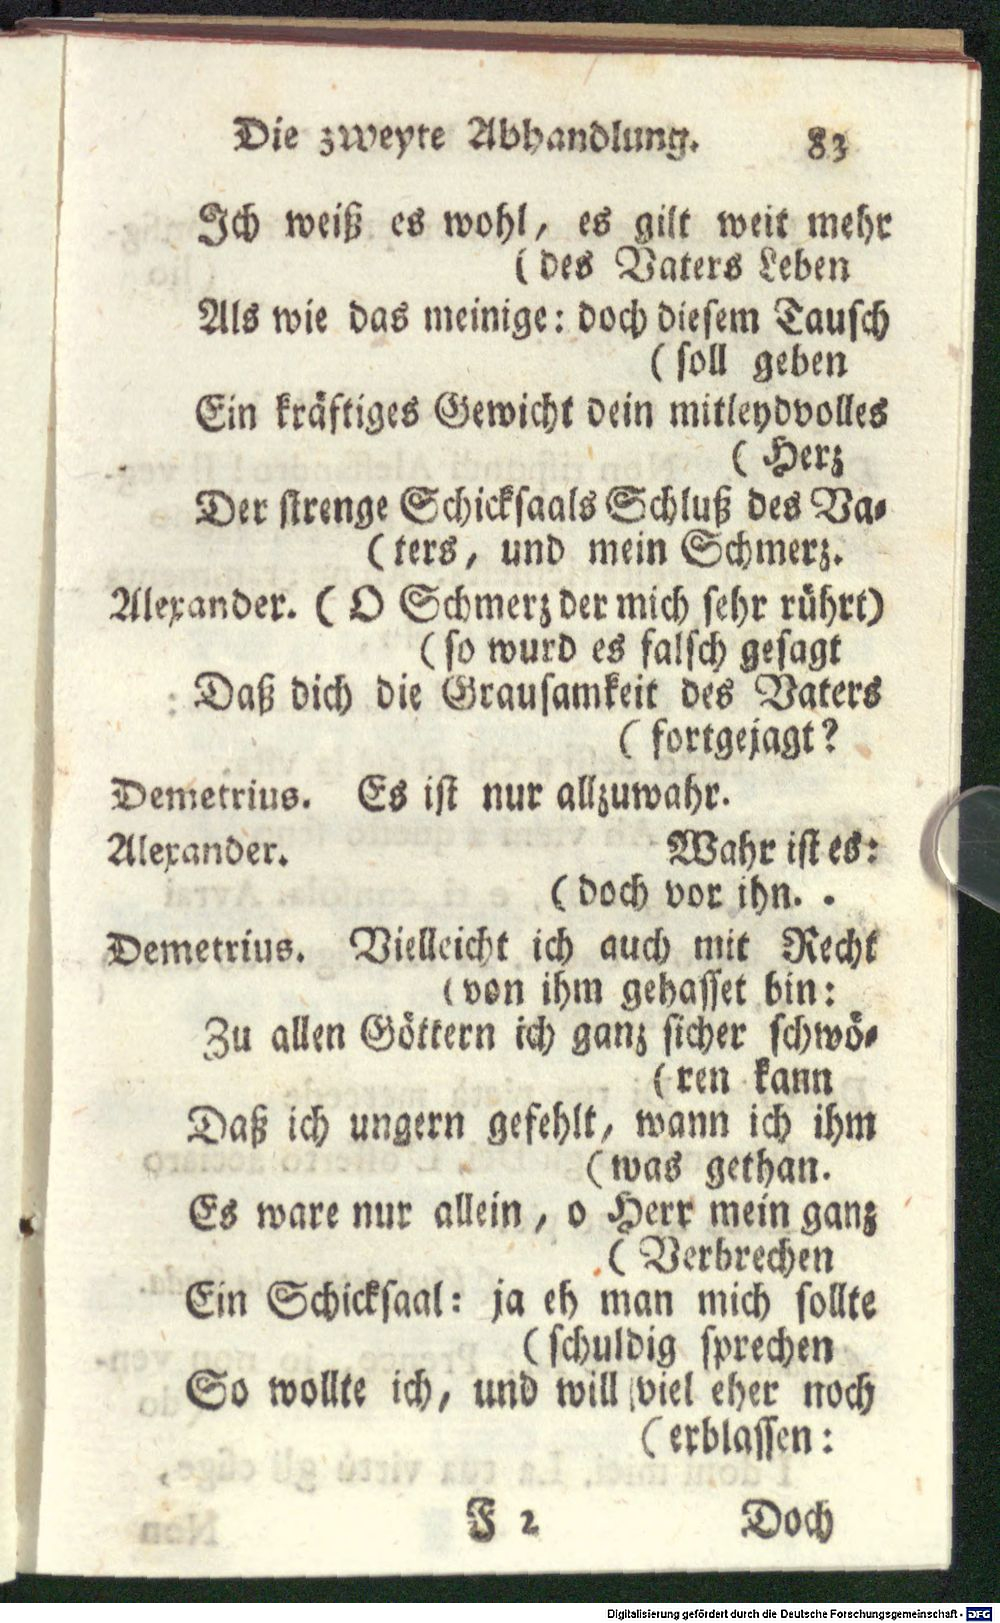 Die zweyte Abhandlung. 83
Ich weiß es wohl, es gilt weit mehr
(des Vaters Leben
Als wie das meinige: doch diesem Tausch
(soll geben
Ein kräftiges Gewicht dein mitleydvolles
(Herz
Der strenge Schicksaals Schluß des Va-
(ters, und mein Schmerz.
Alexander. (O Schmerz der mich sehr rührt)
(so wurd es falsch gesagt
Daß dich die Grausamkeit des Vaters
(fortgejagt?
Demetrius. Es ist nur allzuwahr.
Alexander. Wahr ist es:
(doch vor ihn. .
Demetrius. Vielleicht ich auch mit Recht
(von ihm gehasset bin:
Zu allen Göttern ich ganz sicher schwö-
(ren kann
Daß ich ungern gefehlt, wann ich ihm
(was gethan.
Es ware nur allein, o Herr mein ganz
(Verbrechen
Ein Schicksaal: ja eh man mich sollte
(schuldig sprechen
So wollte ich, und will viel eher noch
(erblassen:
F 2 Doch
Digitalisierung gefördert durch die Deutsche Forschungsgemeinschaft - DFG